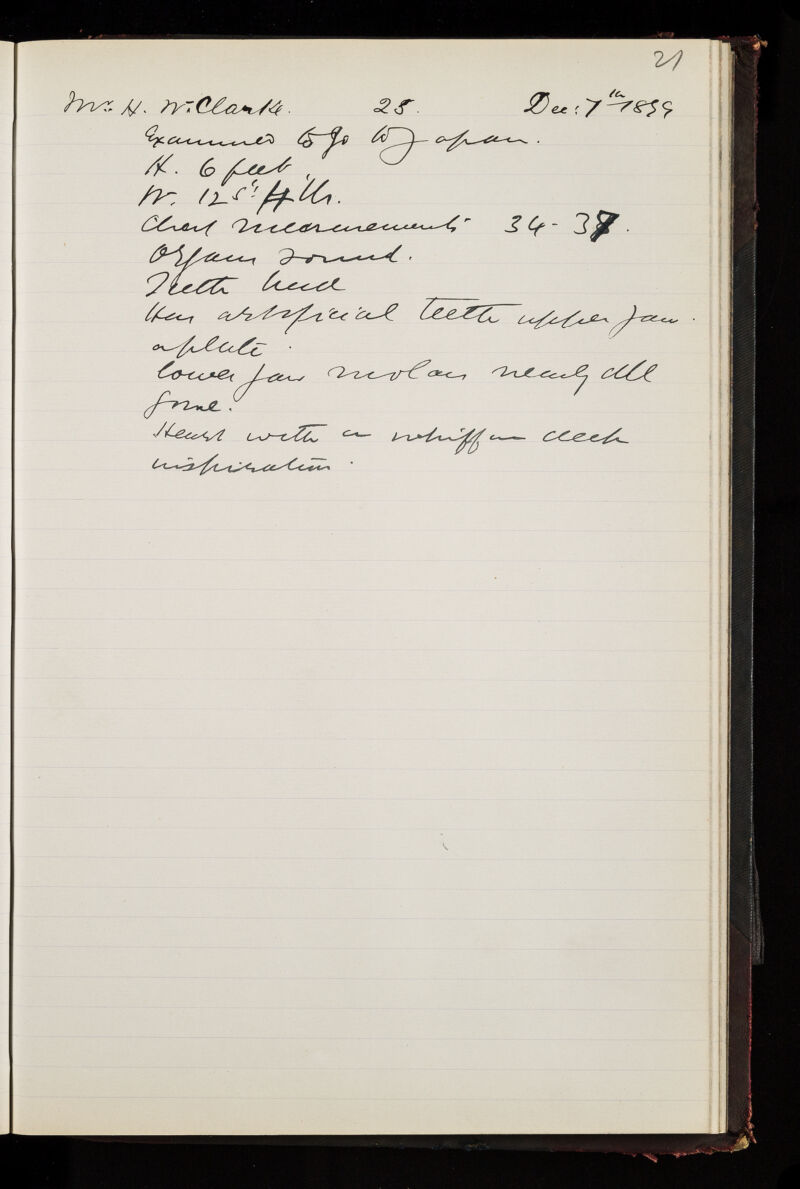 21
Mr. H. W. Clarke. 25. Dec: 7th 1899
Examined to go to Japan.
H. 6 feet
W. 125 lbs.
Chest measurements 34 - 37.
Organs sound.
Teeth bad
Has artificial teeth upper jaw.
a plate.
lower jaw molars nearly all
gone.
Heart with a whiff on deep
inspiration.